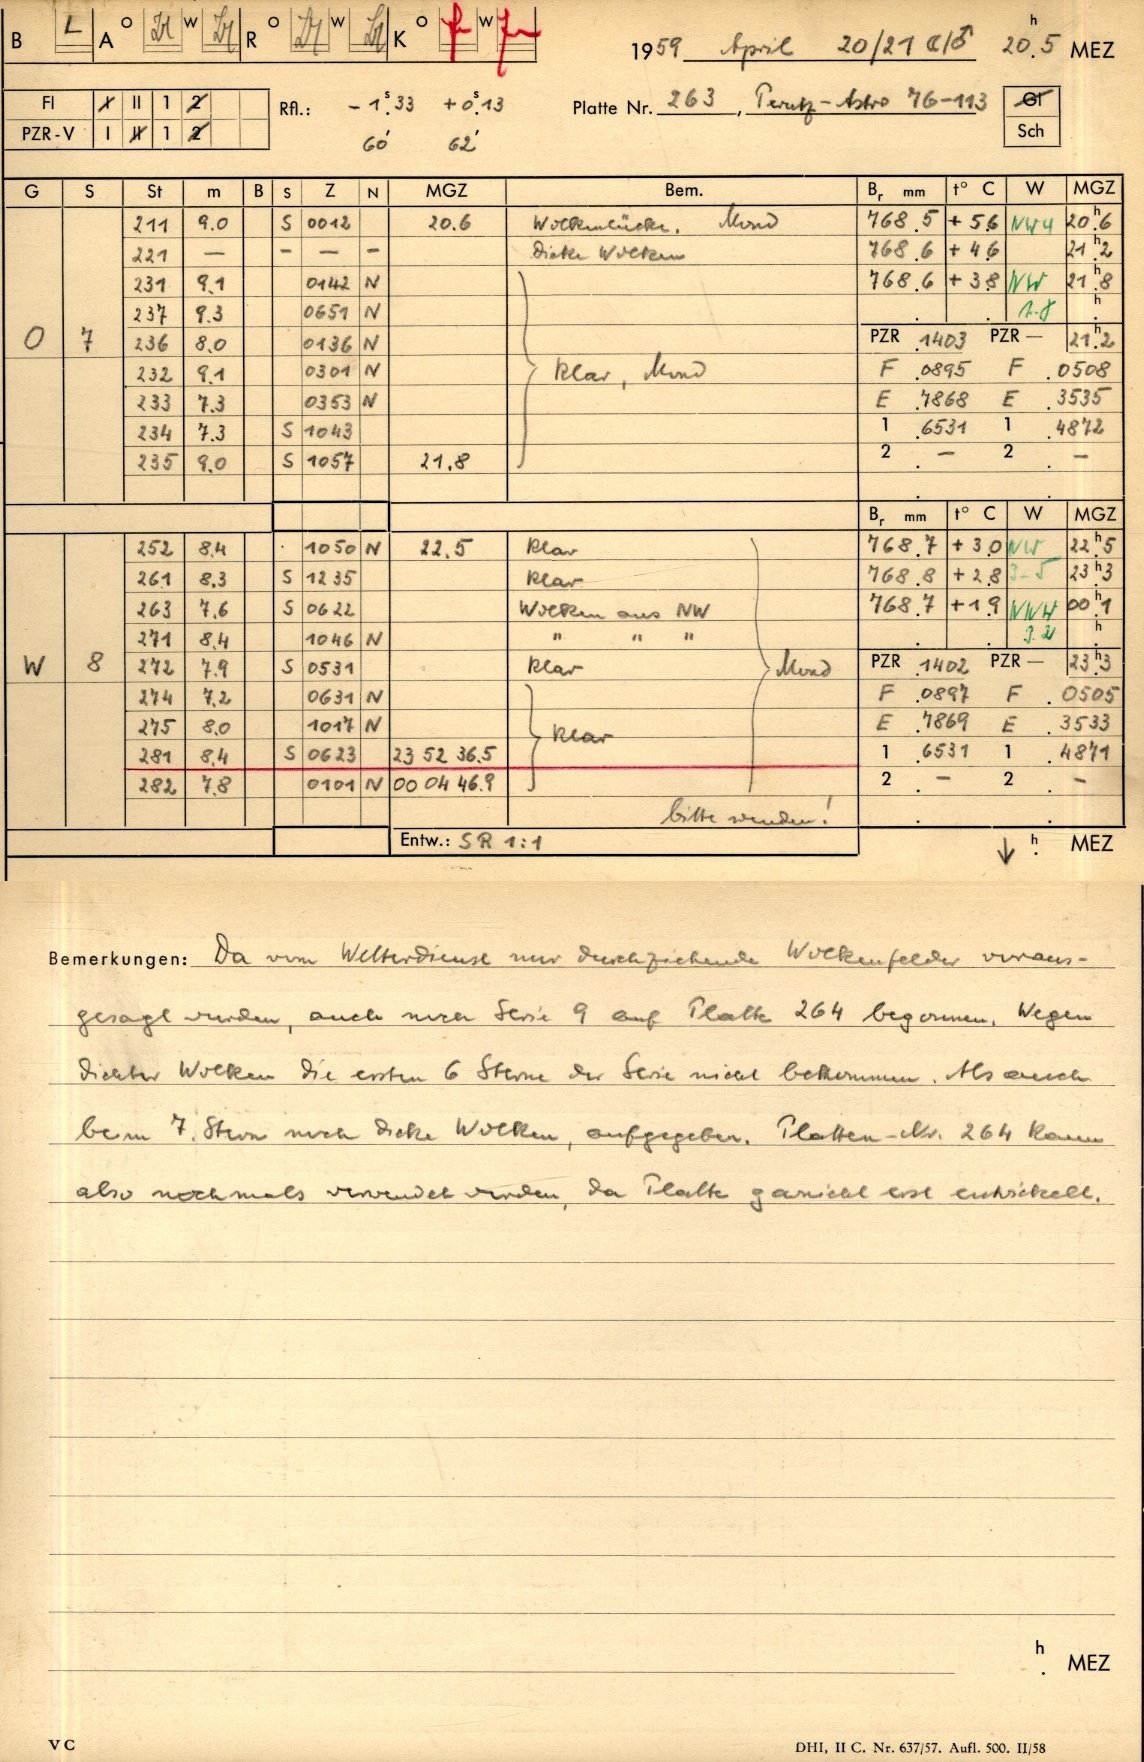 B L A O W R O W K O W
1959 April 20/21 ☾/♂ 20.5 h MEZ
FI I II 1 2 Rfl.: - 1.s33 + 0.s13 Platte Nr. 263, Perutz-Astro 76-113 Gl
PZR-V I II 1 2 60' 62' Sch
G S St m B S Z N MGZ Bem. Br mm t° C W MGZ
211 9.0 S 0012 20.6 Wolkenlücke. Mond 768.5 + 5.6 NW4 20.h6
221 — - - - Dicke Wolken 768.6 + 4.6 21.h2
231 9.1 0142 N 768.6 + 3.8 NW 21.h8
237 9.3 0651 N . . h.
O 7 236 8.0 0136 N PZR .1403 PZR — 21.h2
232 9.1 0301 N klar, Mond F .0895 F .0508
233 7.3 0353 N E .7868 E .3535
234 7.3 S 1043 1 .6531 1 .4872
235 9.0 S 1057 21.8 2 . — 2 . —
Br mm t° C W MGZ
252 8.4 1050 N 22.5 klar 768.7 + 3.0 NW 22.h5
261 8.3 S 1235 klar 768.8 + 2.8 3-5 23.h3
263 7.6 S 0622 Wolken aus NW 768.7 + 1.9 NNW 00.h1
271 8.4 1046 N " " " . . h.
W 8 272 7.9 S 0531 klar Mond PZR .1402 PZR — 23.h3
274 7.2 0631 N F .0897 F .0505
275 8.0 1017 N klar E .7869 E .3533
281 8.4 S 0623 23 52 36.5 1 .6531 1 .4871
282 7.8 0101 N 00 04 46.9 2 . — 2 . —
bitte wenden!
Entw.: SR 1:1 ↓ h. MEZ
Bemerkungen: Da vom Wetterdienst nur durchziehende Wolkenfelder voraus-
gesagt wurden, auch noch Serie 9 auf Platte 264 begonnen. Wegen
dichter Wolken die ersten 6 Sterne der Serie nicht bekommen. Als auch
beim 7. Stern noch dicke Wolken, aufgegeben. Platten-Nr. 264 kann
also nochmals verwendet werden, da Platte garnicht erst entwickelt.
h. MEZ
VC DHI, II C. Nr. 637/57. Aufl. 500. II/58